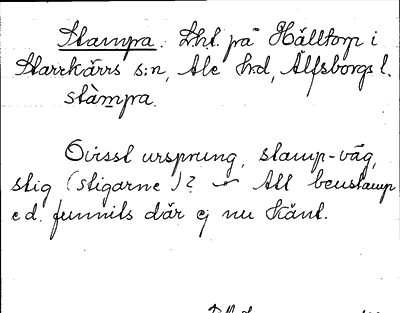 Stampa. Lht. på Hälltorp i
Starrkärrs s:n, Ale hd, Älfsborgs l.
stàmpa.
Ovisst ursprung, stamp-väg,
stig (stigarne)? Att benstamp
e.d. funnits där ej nu känt.